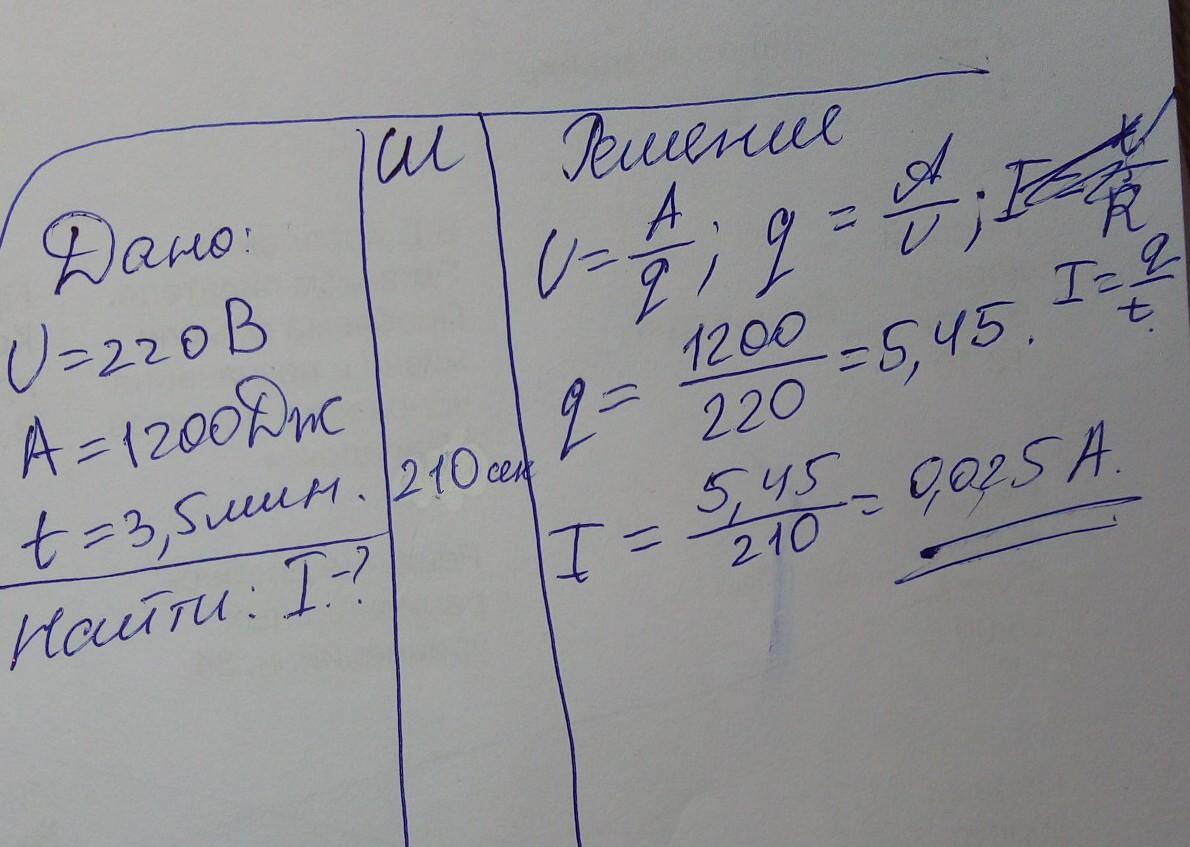 Дано:
U=220В
A=1200Дж
t=3,5мин.
Найти: I-?
СИ
210сек
Решение
U=A/q; q=A/U; I=q/t.
q=1200/220=5,45.
I=5,45/210=0,025A.